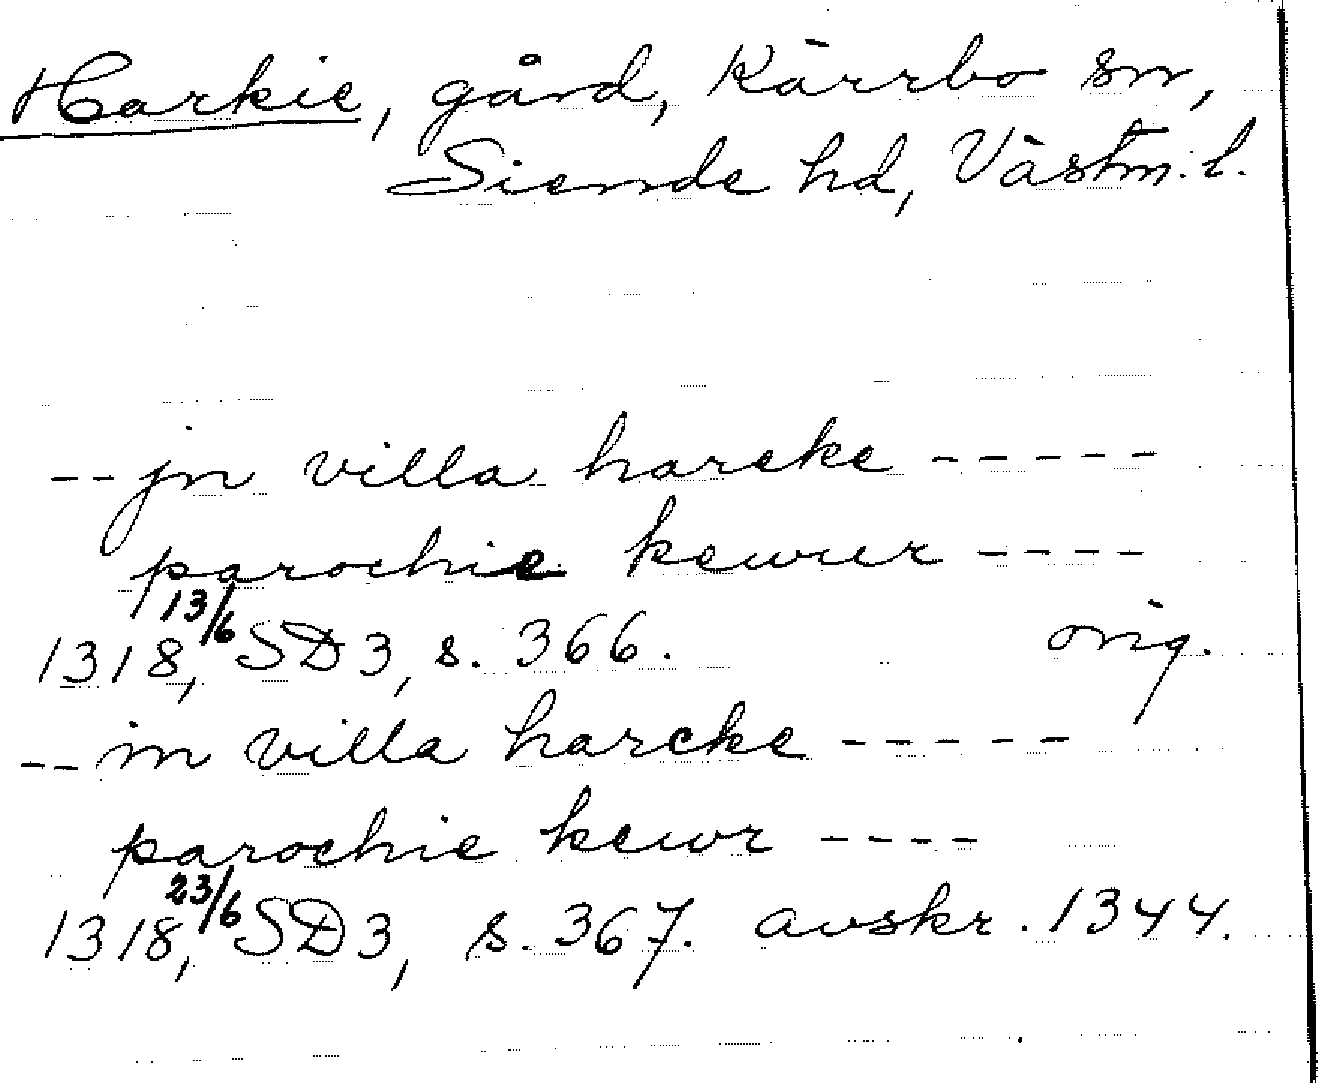 Harkie, gård, Kärrbo sn,
Siende hd, Västm. l.
-- jn villa harcke -----
parochie kewur ----
1318, 13/6 SD 3, s. 366. orig.
-- in villa harcke -----
parochie kewr ----
1318, 23/6 SD 3, s. 367. avskr. 1344.